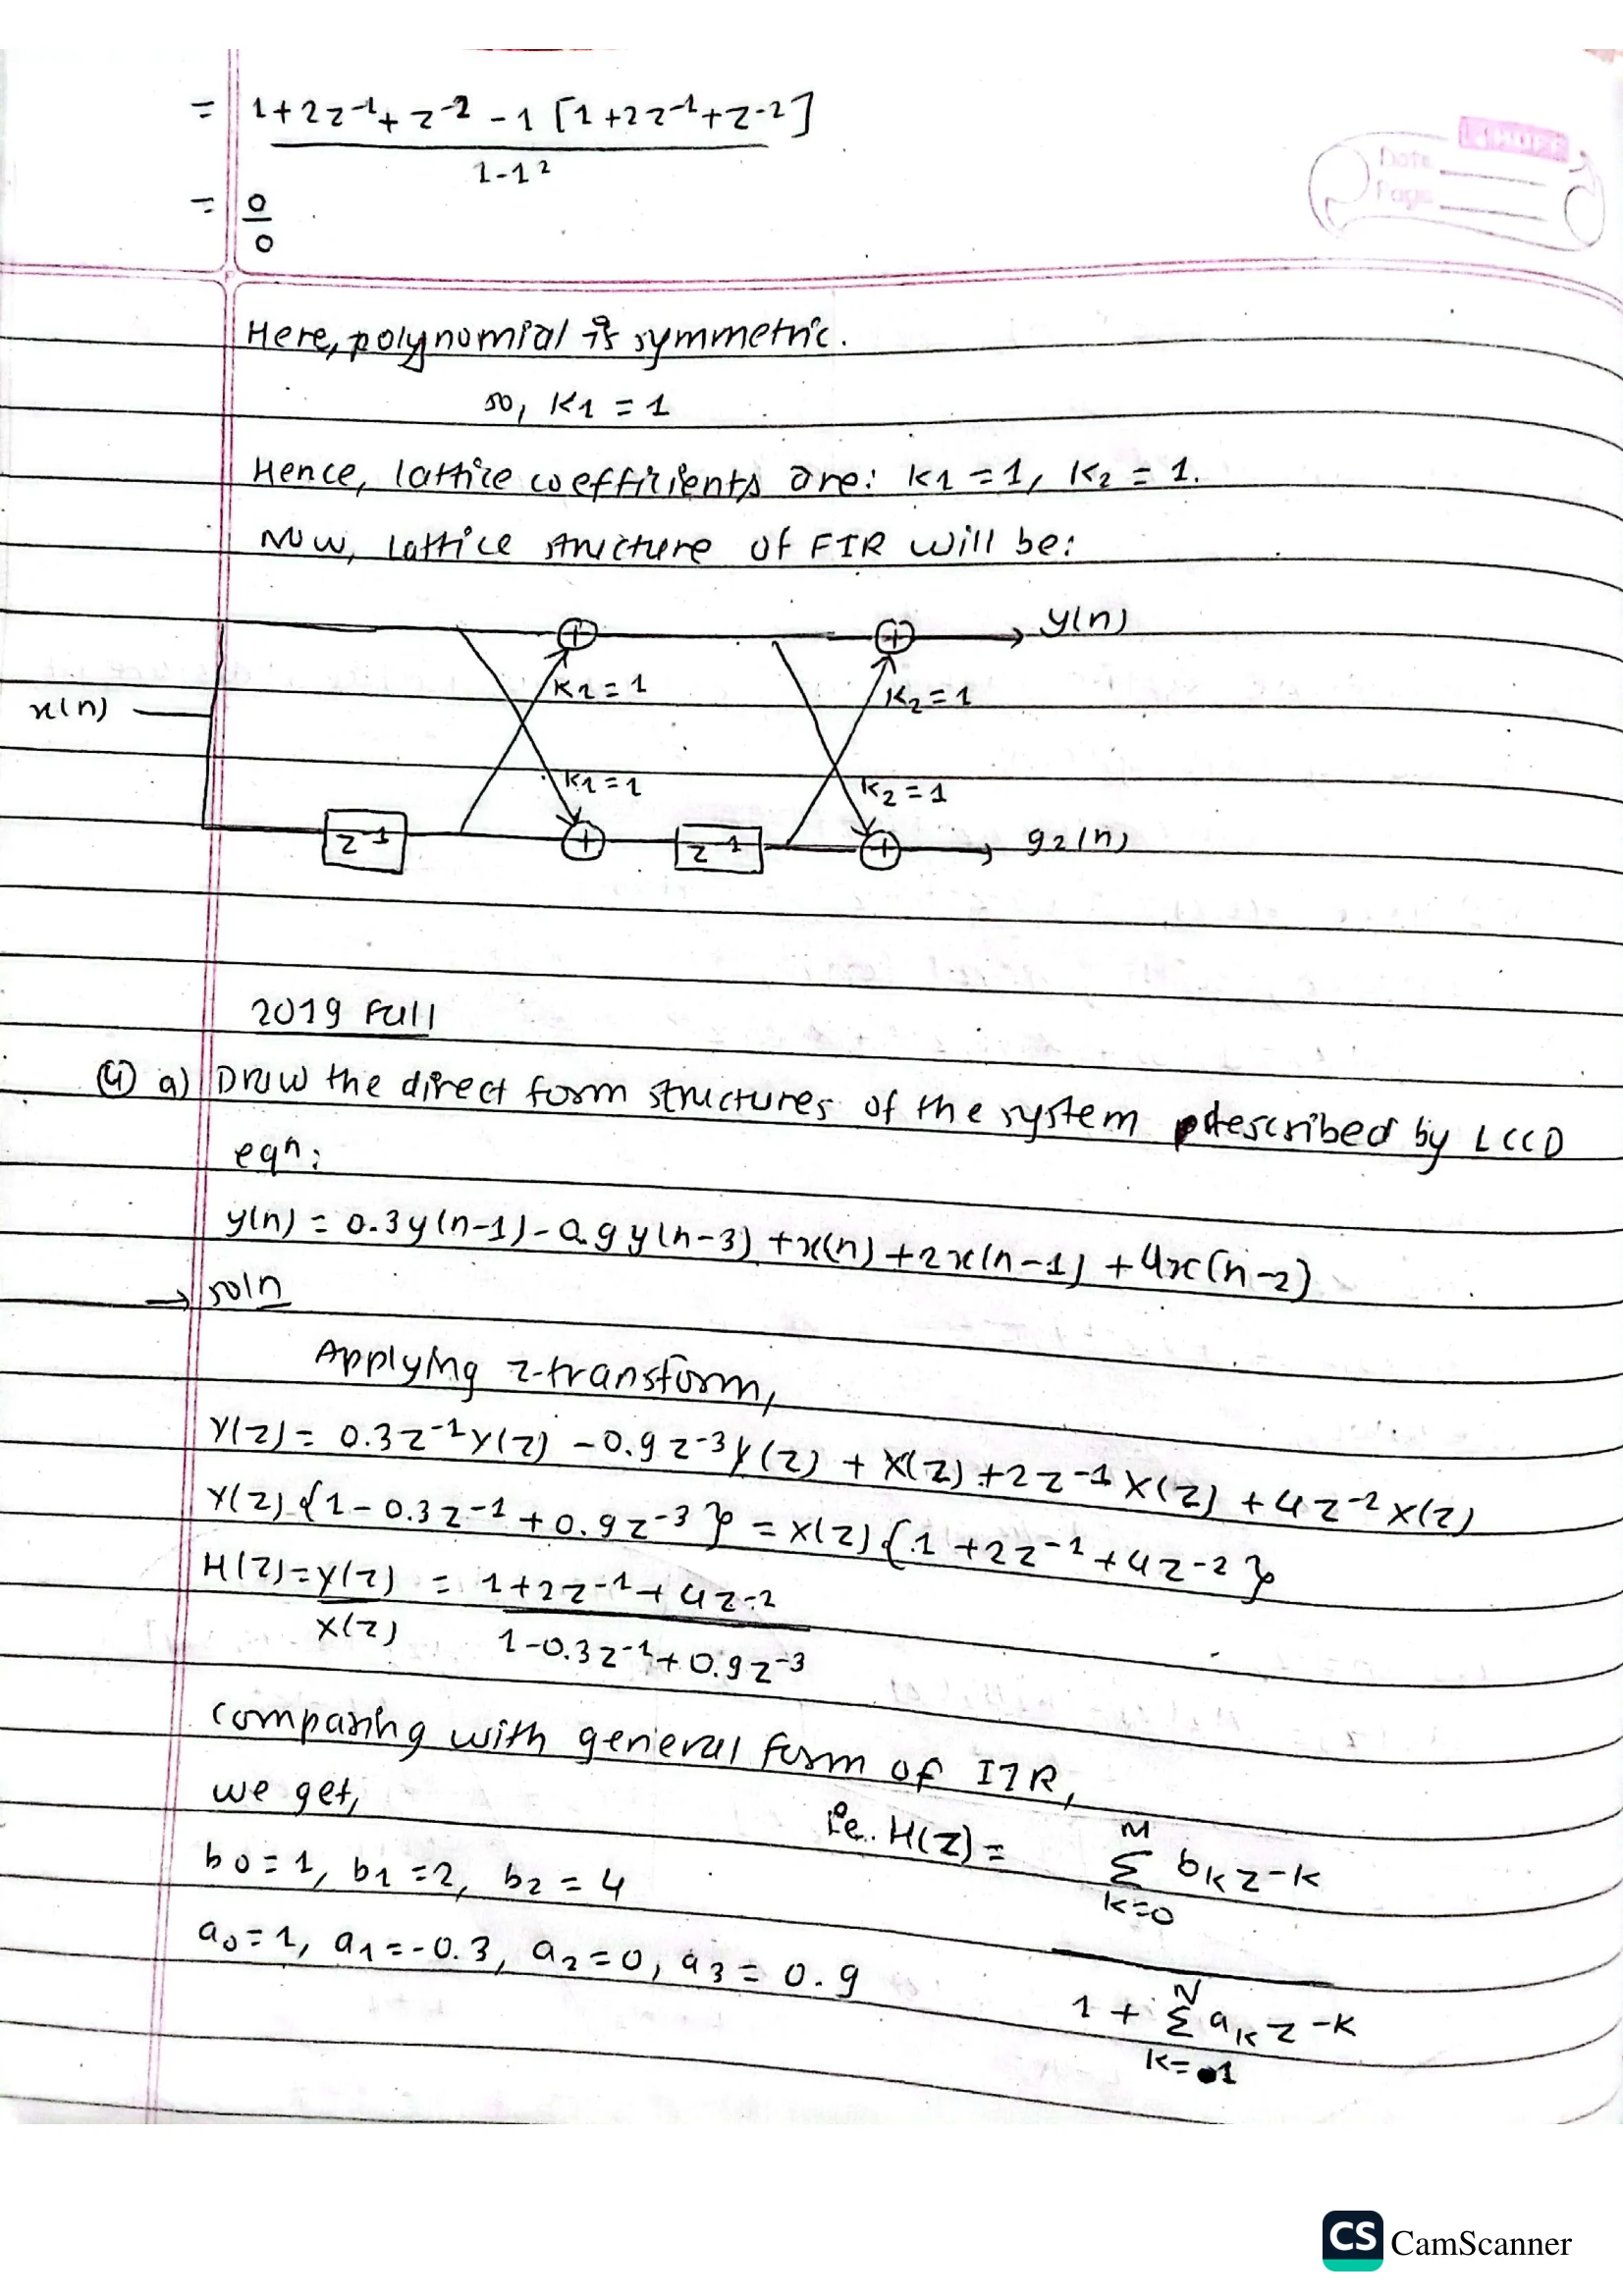 = 1+2z⁻¹+z⁻² - 1 [1+2z⁻¹+z⁻²]
1-1²
= 0
0
Date
Page
Here, polynomial is symmetric.
so, K1 = 1
Hence, lattice coefficients are: K1 = 1, K2 = 1.
Now, Lattice structure of FIR will be:
y(n)
K1 = 1
K2 = 1
x(n)
K1 = 1
K2 = 1
z⁻¹
z⁻¹
g2(n)
2019 Fall
④ a) Draw the direct form structures of the system described by LCCD
eqn:
y(n) = 0.3y(n-1) - 0.9y(n-3) + x(n) + 2x(n-1) + 4x(n-2)
→ soln
Applying z-transform,
Y(z) = 0.3z⁻¹Y(z) - 0.9z⁻³Y(z) + X(z) + 2z⁻¹X(z) + 4z⁻²X(z)
Y(z){1 - 0.3z⁻¹ + 0.9z⁻³} = X(z){1 + 2z⁻¹ + 4z⁻²}
H(z) = Y(z) = 1+2z⁻¹+4z⁻²
X(z) 1-0.3z⁻¹+0.9z⁻³
comparing with general form of IIR,
we get,
i.e. H(z) =
M
Σ bk z⁻k
k=0
b0 = 1, b1 = 2, b2 = 4
a0 = 1, a1 = -0.3, a2 = 0, a3 = 0.9
N
1 + Σ ak z⁻k
k=1
CS CamScanner